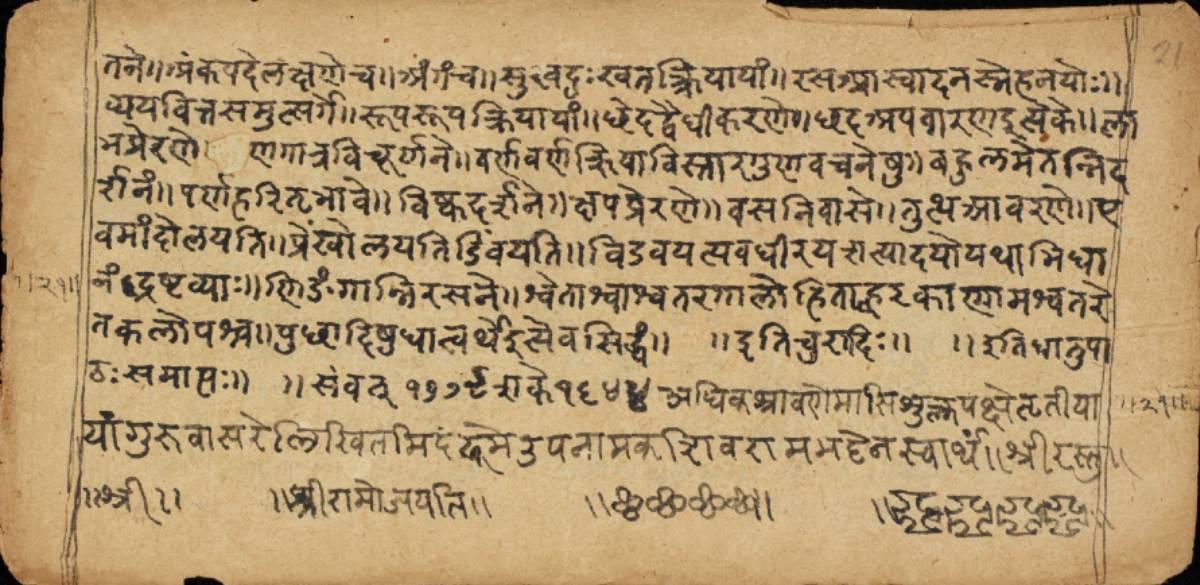 तने॥अंकपदेलक्षणेच॥अंगंच॥सुखदुःखतत्क्रियायां॥रसआस्वादनस्नेहनयोः॥
व्ययवित्तसमुत्सर्गे॥रूपरूपक्रियायां॥छेदद्वैधीकरणे॥छदअपवारणइत्येके॥ला
भप्रेरणे॥ व्रणगात्रविचूर्णने॥वर्णवर्णक्रियाविस्तारगुणवचनेषु॥बहुलमेतन्निद
र्शनं॥पर्णहरितभावे॥विष्कदर्शने॥क्षपप्रेरणे॥वसनिवासे॥तुत्थआवरणे॥ए
वमांदोलयति॥प्रेंखोलयतिडिंवयति॥विडवयत्यवधीरयत्यादयोयथाभिधा
नंद्रष्टव्याः॥णिङंगान्निरसने॥श्वेताश्वाश्वतरगालोहिताह्वरकाणामश्वतरे
तकलोपश्च॥पुछादिषुधात्वर्थेइत्येवसिद्धं॥ ॥इतिचुरादिः॥ ॥इतिधातुपा
ठः समाप्तः॥ ॥संवत् १७७९ शके १६४४ अधिकश्रावणेमासिशुक्लपक्षेतृतीया
यांगुरुवासरेलिखितमिदं उपनामक शिवरामभट्टेनस्वार्थं॥श्रीरस्तु॥
॥श्री॥ ॥श्रीरामोजयति॥
॥२१॥
॥२१॥
21